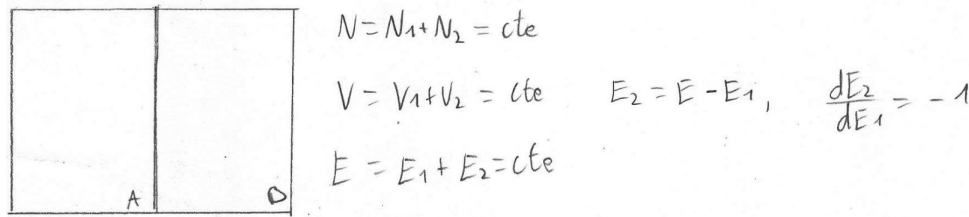 N = N1 + N2 = cte
V = V1 + V2 = cte E2 = E - E1, dE2/dE1 = -1
E = E1 + E2 = cte
A